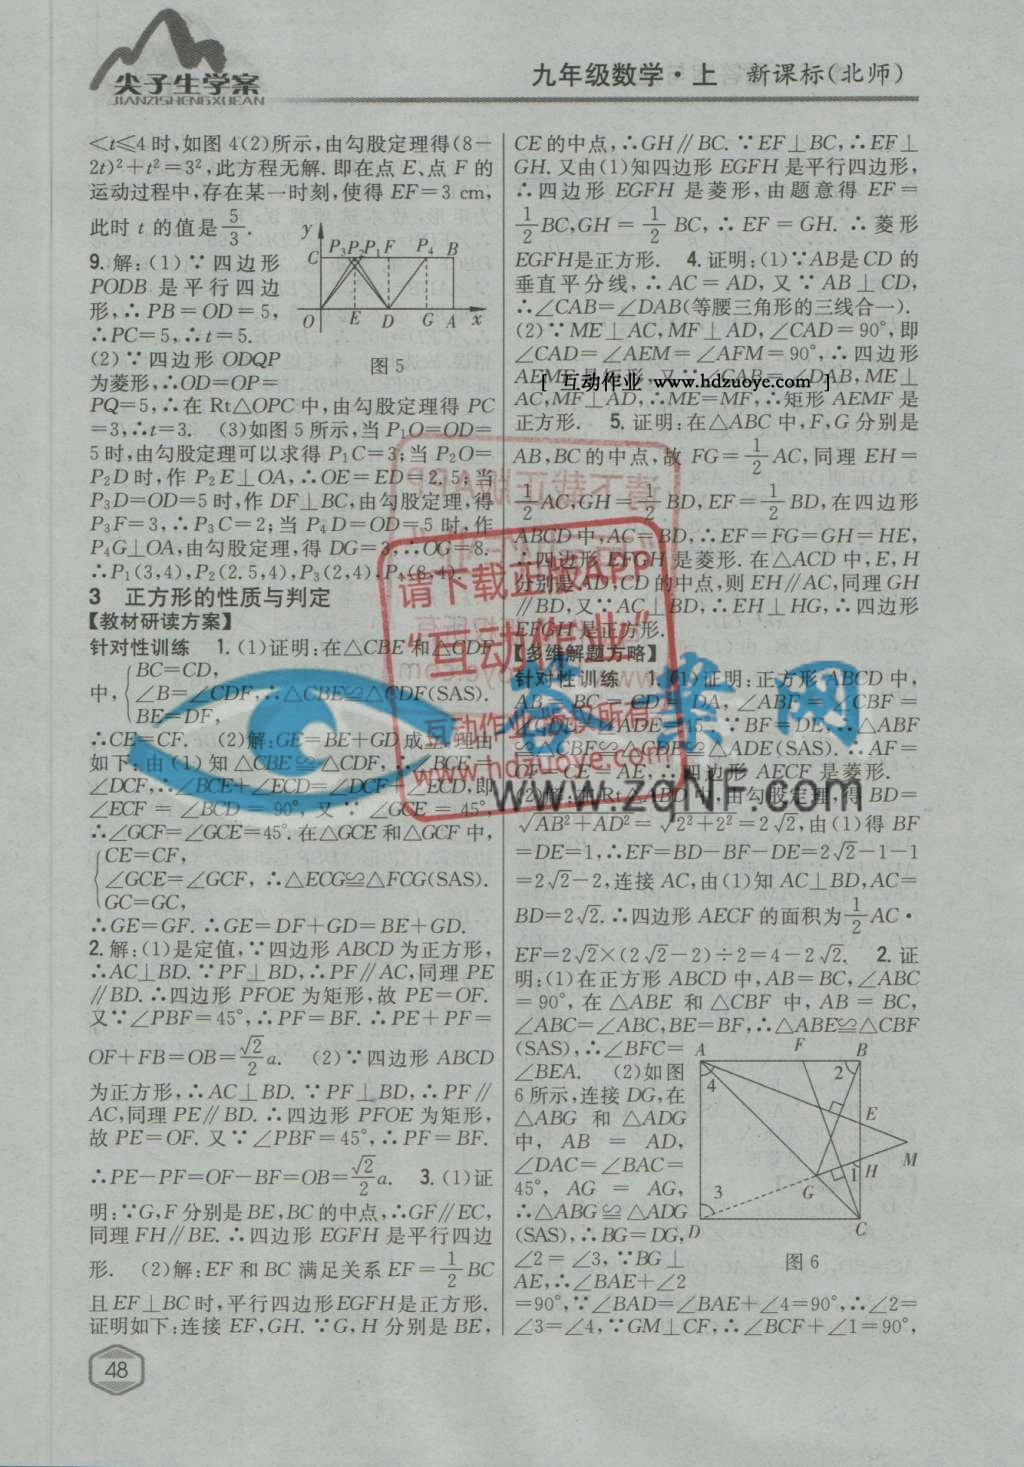 尖子生学案
JIANZISHENGXUEAN
九年级数学·上 新课标(北师)
<t≤4时,如图4(2)所示,由勾股定理得(8-
2t)²+t²=3²,此方程无解.即在点E、点F的
运动过程中,存在某一时刻,使得EF=3 cm,
此时t的值是5/3.
9.解:(1)∵四边形
PODB是平行四边
形,∴PB=OD=5,
∴PC=5,∴t=5.
(2)∵四边形ODQP
为菱形,∴OD=OP=
y C P₃ P₂ P₁ F P₄ B
O E D G A x
图5
PQ=5,∴在Rt△OPC中,由勾股定理得PC
=3,∴t=3. (3)如图5所示,当P₁O=OD=
5时,由勾股定理可以求得P₁C=3;当P₂O=
P₂D时,作P₂E⊥OA,∴OE=ED=2.5;当
P₃D=OD=5时,作DF⊥BC,由勾股定理,得
P₃F=3,∴P₃C=2;当P₄D=OD=5时,作
P₄G⊥OA,由勾股定理,得DG=3,∴OG=8.
∴P₁(3,4),P₂(2.5,4),P₃(2,4),P₄(8,4).
3 正方形的性质与判定
【教材研读方案】
针对性训练 1.(1)证明:在△CBE和△CDF
中,{BC=CD,
∠B=∠CDF,∴△CBE≌△CDF(SAS).
BE=DF,
∴CE=CF. (2)解:GE=BE+GD成立.理由
如下:由(1)知△CBE≌△CDF,∴∠BCE=
∠DCF,∴∠BCE+∠ECD=∠DCF+∠ECD,即
∠ECF=∠BCD=90°,又∵∠GCE=45°,
∴∠GCF=∠GCE=45°.在△GCE和△GCF中,
{CE=CF,
∠GCE=∠GCF, ∴△ECG≌△FCG(SAS).
GC=GC,
∴GE=GF.∴GE=DF+GD=BE+GD.
2.解:(1)是定值,∵四边形ABCD为正方形,
∴AC⊥BD.∵PF⊥BD,∴PF∥AC,同理PE
∥BD.∴四边形PFOE为矩形,故PE=OF.
又∵∠PBF=45°,∴PF=BF.∴PE+PF=
OF+FB=OB=√2/2a. (2)∵四边形ABCD
为正方形,∴AC⊥BD.∵PF⊥BD,∴PF∥
AC,同理PE∥BD.∴四边形PFOE为矩形,
故PE=OF.又∵∠PBF=45°,∴PF=BF.
∴PE-PF=OF-BF=OB=√2/2a. 3.(1)证
明:∵G,F分别是BE,BC的中点,∴GF∥EC,
同理FH∥BE.∴四边形EGFH是平行四边
形. (2)解:EF和BC满足关系EF=1/2BC
且EF⊥BC时,平行四边形EGFH是正方形.
证明如下:连接EF,GH.∵G,H分别是BE,
48
CE的中点,∴GH∥BC.∵EF⊥BC,∴EF⊥
GH.又由(1)知四边形EGFH是平行四边形,
∴四边形EGFH是菱形,由题意得EF=
1/2BC,GH=1/2BC,∴EF=GH.∴菱形
EGFH是正方形. 4.证明:(1)∵AB是CD的
垂直平分线,∴AC=AD,又∵AB⊥CD,
∴∠CAB=∠DAB(等腰三角形的三线合一).
(2)∵ME⊥AC,MF⊥AD,∠CAD=90°,即
∠CAD=∠AEM=∠AFM=90°,∴四边形
AEMF是矩形,又∵∠CAB=∠DAB,ME⊥
[ 互动作业 www.hdzuoye.com ]
AC,MF⊥AD,∴ME=MF,∴矩形AEMF是
正方形. 5.证明:在△ABC中,F,G分别是
AB,BC的中点,故FG=1/2AC,同理EH=
1/2AC,GH=1/2BD,EF=1/2BD,在四边形
ABCD中,AC=BD,∴EF=FG=GH=HE,
∴四边形EFGH是菱形.在△ACD中,E,H
分别是AD,CD的中点,则EH∥AC,同理GH
∥BD,又∵AC⊥BD,∴EH⊥HG,∴四边形
EFGH是正方形.
【多维解题方略】
针对性训练 1.(1)证明:正方形ABCD中,
AB=BC=CD=DA,∠ABF=∠CBF=
∠CDE=∠ADE=45°.∵BF=DE,∴△ABF
≌△CBE≌△CDE≌△ADE(SAS).∴AF=
CF=CE=AE,∴四边形AECF是菱形.
(2)解:在Rt△ABD中,由勾股定理,得BD=
√AB²+AD²=√2²+2²=2√2,由(1)得BF
=DE=1,∴EF=BD-BF-DE=2√2-1-1
=2√2-2,连接AC,由(1)知AC⊥BD,AC=
BD=2√2.∴四边形AECF的面积为1/2AC·
EF=2√2×(2√2-2)÷2=4-2√2. 2.证
明:(1)在正方形ABCD中,AB=BC,∠ABC
=90°,在△ABE和△CBF中,AB=BC,
∠ABC=∠ABC,BE=BF,∴△ABE≌△CBF
(SAS),∴∠BFC=
∠BEA. (2)如图
6所示,连接DG,在
△ABG和△ADG
中,AB=AD,
∠DAC=∠BAC=
45°,AG=AG,
∴△ABG≌△ADG
(SAS),∴BG=DG,
∠2=∠3,∵BG⊥
AE,∴∠BAE+∠2
A F B
4 2
E
M
H
G 1
3
D C
图6
=90°,∵∠BAD=∠BAE+∠4=90°,∴∠2=
∠3=∠4,∵GM⊥CF,∴∠BCF+∠1=90°,
请下载正版APP
“互动作业”
互动作业 版权所有
www.hdzuoye.com
答案网
www.zqNF.com